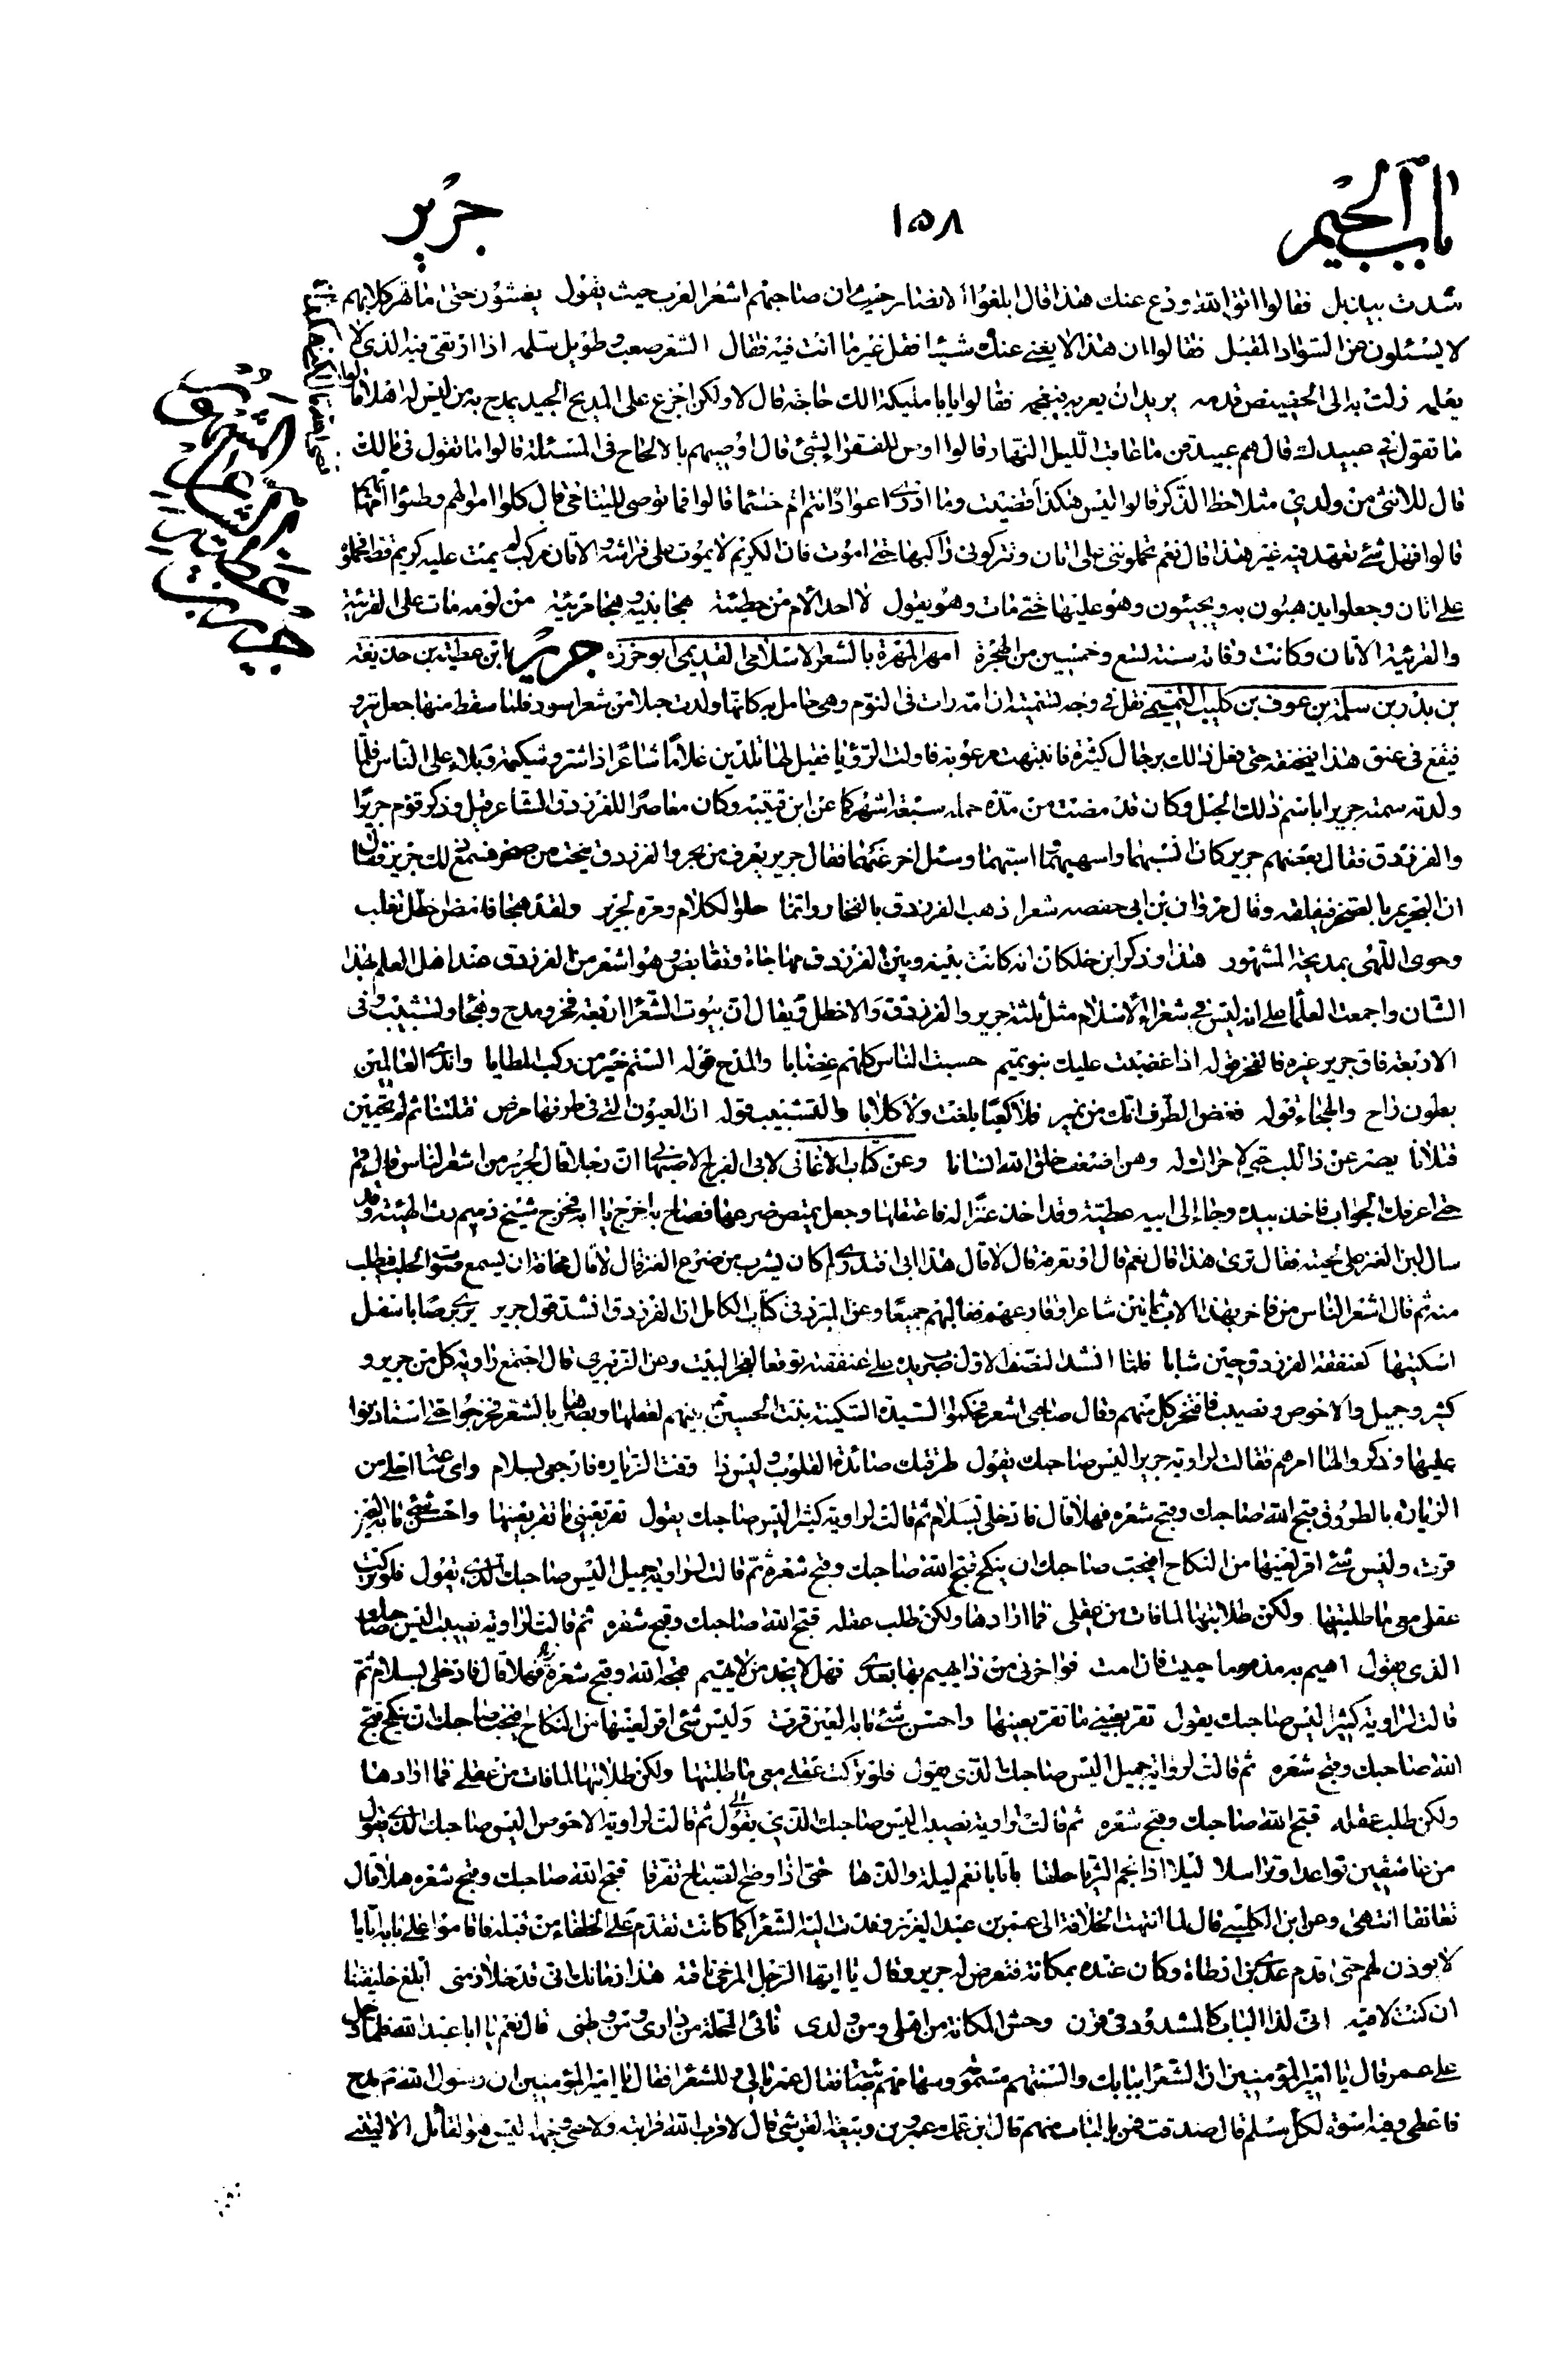 باب الجيم
١٥٨
جرير
شدت بيذبل فقالوا اتق الله ودع عنك هذا قال ابلغوا الانصار ان صاحبهم اشعر العرب حيث يقول يغشون حتى ما تهر كلابهم
لا يسئلون عن السواد المقبل فقالوا ان هذا لا يغنى عنك شيئا فقل غير ما انت فيه فقال الشعر صعب وطويل سلمه اذا ارتقى فيه الذى لا
يعلمه زلت به الى الحضيض قدمه يريد ان يعربه فيعجمه فقالوا يا ابا مليكة الك حاجة قال لا ولكن اجزع على المديح الجيد يمدح به من ليس له اهلا
ما تقول فى عبيدك قال هم عبيد قن ما عاقب الليل النهار قالوا اوص للفقراء بشئ قال اوصيهم بالالحاح فى المسئلة قالوا ما تقول فى مالك
قال للانثى من ولدى مثلا حظ الذكر قالوا ليس هكذا قضيت قالوا فما توصى لليتامى قال كلوا اموالهم
قالوا فهل شئ تعهد فيه غير هذا قال نعم تحملوننى على اتان وتتركونى راكبها حتى اموت فان الكريم لا يموت على فراشه والاتان مركب لم يمت عليه كريم قط فحملوه
على اتان وجعلوا يذهبون به ويجيئون وهو عليها حتى مات وهو يقول لا احد الأم من حطيئة هجا بنيه وهجا مريئة من لومه مات على الفريئة
والفريئة الاتان وكانت وفاته سنة تسع وخمسين من الهجرة امهر المهرة بالشعر الاسلامى القديمى ابو حزره جرير ابن عطية بن حذيفة
بن بدر بن سلمة بن عوف بن كليب التميمى نقل فى وجه تسميته ان امه رات فى النوم وهى حامل به كانها ولدت حبلا من شعر اسود فلما سقط منها جعل ينزو
فيقع فى عنق هذا فيخنقه حتى فعل ذلك برجال كثيرة فانتبهت مرعوبة فاولت الرؤيا فقيل لها تلدين غلاما شاعرا ذا شر وشكيمة وبلاء على الناس فلما
ولدته سمته جريرا باسم ذلك الحبل وكان قد مضت من مدة حمله سبعة اشهر كما عن ابن قتيبة وكان معاصرا للفرزدق الشاعر قيل وذكر قوم جريرا
والفرزدق فقال بعضهم جرير كان انسبهما واسهبهما وسئل اخر عنهما فقال جرير يغرف من بحر والفرزدق ينحت من صخر فسمع ذلك جرير فقال
ان البحر يمر بالصخر فيفلقه وقال مروان بن ابى حفصه شعرا ذهب الفرزدق بالفخار وانما حلو الكلام ومره لجرير ولقد هجا فامض اخطل تغلب
وحوى اللهى بمديحه المشهور هذا وذكر ابن خلكان انه كانت بينه وبين الفرزدق مهاجاة ونقائض وهو اشعر من الفرزدق عند اهل العلم بهذا
الشان واجمعت العلما على انه ليس فى شعراء الاسلام مثل ثلثة جرير والفرزدق والاخطل ويقال ان بيوت الشعر اربعة فخر ومدح وهجا وتشبيب وفى
الاربعة فاق جرير غيره فالفخر قوله اذا غضبت عليك بنو تميم حسبت الناس كلهم غضابا والمدح قوله الستم خير من ركب المطايا واندى العالمين
بطون راح والهجاء قوله فغض الطرف انك من نمير فلا كعبا بلغت ولا كلابا والتشبيب قوله ان العيون التى فى طرفها مرض قتلننا ثم لم يحيين
قتلانا يصرعن ذا اللب حتى لا حراك له وهن اضعف خلق الله انسانا وعن كتاب الاغانى لابى الفرج الاصبهانى ان رجلا قال لجرير من اشعر الناس قال له قم
حتى اعرفك الجواب فاخذ بيده وجاء الى ابيه عطية وقد اخذ عنزا له فاعتقلها وجعل يمتص ضرعها فصاح به اخرج يا ابه فخرج شيخ ذميم رث الهيئة وقد
سال لبن العنز على لحيته فقال ترى هذا قال نعم قال او تعرفه قال لا قال هذا ابى افتدرى لم كان يشرب من ضرع العنز قال لا قال مخافة ان يسمع صوت الحلب فيطلب
منه ثم قال اشعر الناس من فاخر بهذا الاب ثمانين شاعرا وقارعهم فغلبهم جميعا وعن المبرد فى كتاب الكامل ان الفرزدق انشد قول جرير ترى برصا باسفل
اسكتيها كعنفقة الفرزدق حين شابا فلما انشد النصف الاول ضرب يده على عنفقته توقعا لعجز البيت وعن الزبيرى قال اجتمع راوية كل من جرير و
كثير وجميل والاحوص ونصيب فافتخر كل منهم وقال صاحبى اشعر فحكموا السيدة السكينة بنت الحسين بينهم لعقلها وبصرها بالشعر فخرجوا حتى استاذنوا
عليها وذكروا لها امرهم فقالت لراوية جرير اليس صاحبك يقول طرقتك صائدة القلوب وليس ذا وقت الزيارة فارجعى بسلام واى ساعة احلى من
الزيارة بالطروق قبح الله صاحبك وقبح شعره فهلا قال فادخلى بسلام ثم قالت لراوية كثير اليس صاحبك يقول تقر بعينى ما تقر بعينها واحسن شئ ما به العين
قرت وليس شئ اقر لعينها من النكاح افيحب صاحبك ان ينكح قبح الله صاحبك وقبح شعره ثم قالت لراوية جميل اليس صاحبك الذى يقول فلو تركت
عقلى معى ما طلبتها ولكن طلابيها لما فات من عقلى فما ارادها ولكن طلب عقله قبح الله صاحبك وقبح شعره ثم قالت لراوية نصيب اليس صاحبك
الذى يقول اهيم بدعد ما حييت فان امت فواحزنى من ذا يهيم بها بعدى قبحه الله وقبح شعره فهلا قال فادخلى بسلام ثم
قالت لراوية كثير اليس صاحبك يقول تقر بعينى ما تقر بعينها واحسن شئ ما به العين قرت وليس شئ اقر لعينها من النكاح افيحب صاحبك ان ينكح قبح
الله صاحبك وقبح شعره ثم قالت لراوية جميل اليس صاحبك الذى يقول فلو تركت عقلى معى ما طلبتها ولكن طلابيها لما فات من عقلى فما ارادها
ولكن طلب عقله قبح الله صاحبك وقبح شعره ثم قالت لراوية نصيب اليس صاحبك الذى يقول ثم قالت لراوية الاحوص اليس صاحبك الذى يقول
من عاشقين تواعدا وتراسلا ليلا اذا نجم الثريا حلقا باتا بانعم ليلة والذها حتى اذا وضح الصباح تفرقا قبح الله صاحبك وقبح شعره هلا قال
تعانقا انتهى وعن ابن الكلبى قال لما انتهت الخلافة الى عمر بن عبد العزيز وفدت اليه الشعرا كما كانت تقدم على الخلفاء من قبله فاقاموا على بابه اياما
لا يوذن لهم حتى قدم عدى بن ارطاة وكان عنده بمكانة فتعرض له جرير وقال يا ايها الرجل المزجى ناقته هذا زمانك انى قد خلا زمنى ابلغ خليفتنا
ان كنت لاقيه انى لذا الباب كالمشدود فى قرن وحش المكانة من اهلى ومن ولدى نائى المحلة من دارى ومن وطنى قال نعم يا ابا عبد الله فلما دخل
على عمر قال يا امير المؤمنين ان الشعرا ببابك والسنتهم مسمومة وسهامهم صائبة فقال عمر مالى وللشعرا فقال يا امير المؤمنين ان رسول الله مدح
فاعطى وفيه اسوة لكل مسلم قال صدقت فمن بالباب منهم قال ابن عمك عمر بن ربيعة القرشى قال لا قرب الله قرابته ولا حيى وجهه اليس هو القائل الا ليتنى